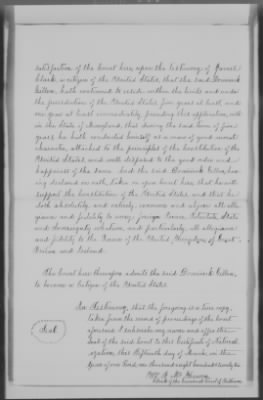 satisfaction of the Court here, upon the testimony of
Clark, a citizen of the United States, that the said Dominick
hath continued to reside within the limits and under
the jurisdiction of the United States, five years at least, and
one year at least immediately preceding this application, with
in the State of Maryland, that during the said term of five
years he hath conducted himself as a man of good moral
character, attached to the principles of the Constitution of the
United States, and well disposed to the good order and
happiness of the same. And the said Dominick hav
ing declared on oath, taken in open Court here, that he will
support the Constitution of the United States, and that he
doth absolutely and entirely renounce and abjure all alle
giance and fidelity to every foreign Prince, Potentate, State
and Sovereignty whatever, and particularly, all allegiance
and fidelity to the Queen of the United Kingdom of Great
Britain and Ireland.
The Court here thereupon admits the said Dominick
to become a citizen of the United States.
In Testimony, that the foregoing is a true copy,
taken from the record of proceedings of the Court
aforesaid I subscribe my name and affix the
Seal
Seal of the said Court to this Certificate of Natural
ization, this fifteenth day of March in the
year of our Lord, one thousand eight hundred
Clerk of the Court of